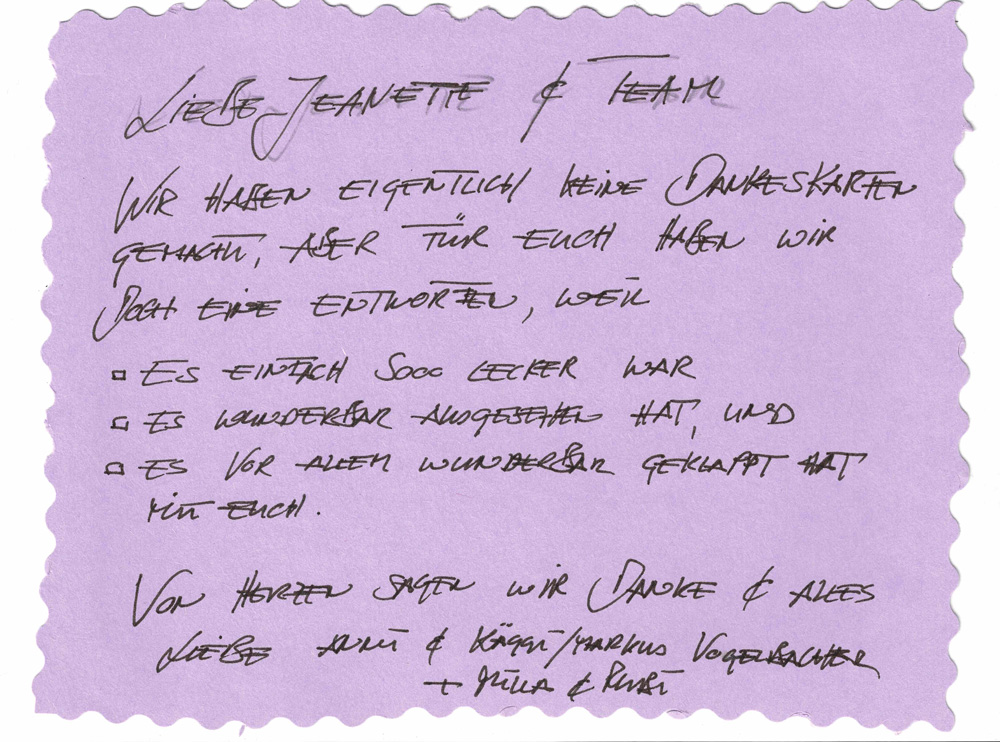 Liebe Jeanette & Team
Wir haben eigentlich keine Dankeskarten
gemacht, aber für euch haben wir
doch eine entworfen, weil
▫ Es einfach sooo lecker war
▫ Es wunderbar ausgesehen hat, und
▫ Es vor allem wunderbar geklappt hat
mit euch.
Von Herzen sagen wir Danke & alles
Liebe & Markus Vogelbacher
+ &